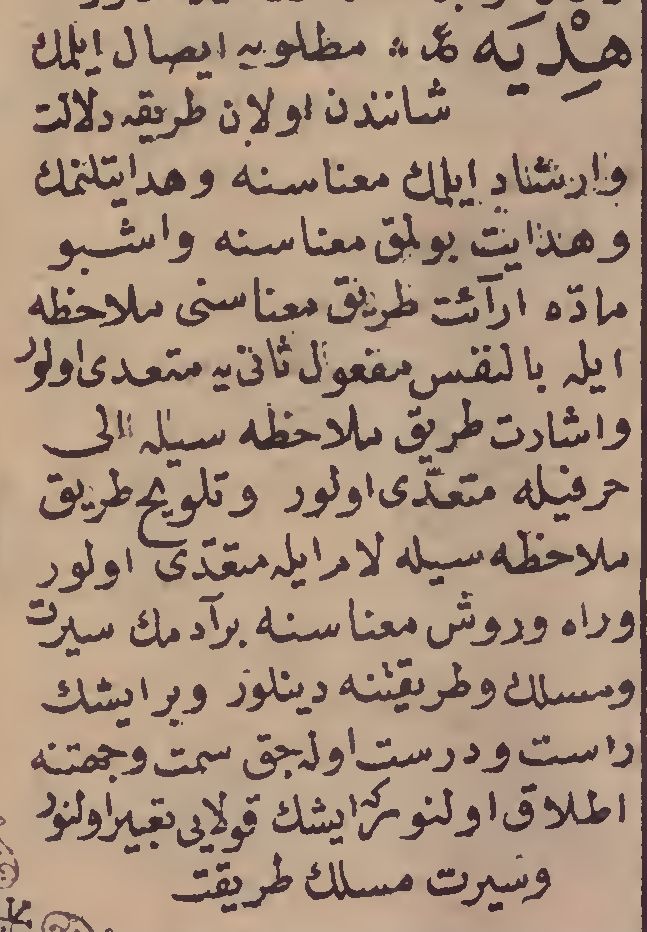 هِدْيَه ع * مطلوبه ايصال ايلمك
شانندن اولان طريقه دلالت
وارشاد ايلمك معناسنه وهدايتلنمك
وهدايت بولمق معناسنه واشبو
مادّه ارآئت طريق معناسنى ملاحظه
ايله بالنفس مفعول ثانى‌يه متعدى اولور
واشارت طريق ملاحظه سيله الى
حرفيله متعدّى اولور وتلويح طريق
ملاحظه سيله لام ايله متعدّى اولور
وراه وروش معناسنه برآدمك سيرت
ومسلك وطريقتنه دينلور وبر ايشك
راست ودرست اوله جق سمت وجهتنه
اطلاق اولنور كه ايشك قولايى تعبير اولنور
وسيرت مسلك طريقت